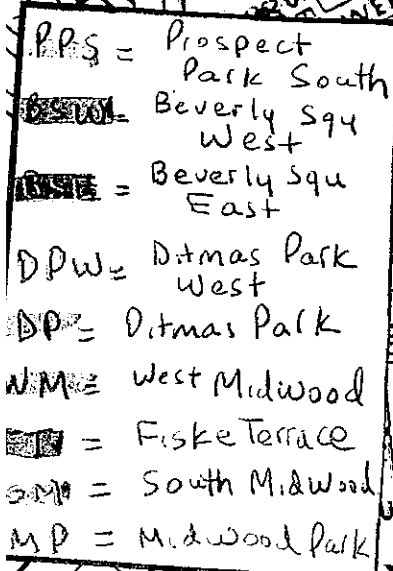 PPS = Prospect
Park South
BSW = Beverly Squ
West
BSE = Beverly Squ
East
DPW = Ditmas Park
West
DP = Ditmas Park
WM = West Midwood
= Fiske Terrace
SM = South Midwood
MP = Midwood Park